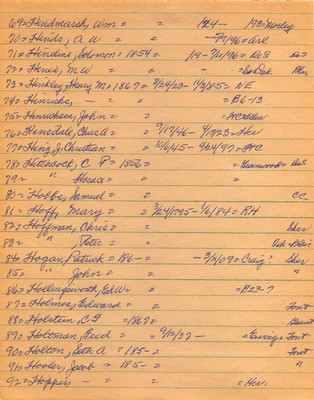 69 = Hindmarsh, Wm = = 1924 - 193 = Morley
70 = Hinds, A W = = -5/4/96 = Carl
71 = Hindine, Solomon = 1854 = 19 - 7/21/96 = DeS DeS
72 = Hines, M W = = Ed Oak
73 = Hinkley, Henry M = 1867 = 8/24/23 - 1/2/85 = NE
74 = Hinricks, - = = B6-13
75 = Hinrichsen, John = =
76 = Hinsdale, Chas A = = 9/17/46 - 1923 = Hcv
77 = Hinz, J. Christian = = 10/6/45 - 4/24/97 =
78 = Hitchcock, C P = 1856 = = Greenwood = DeS
79 = " Horace = =
80 = Hobbs, Samuel = = CC
81 = Hoff, Mary = = 3/24/1795 - 1/6/84 = RH
82 = Hoffman, Chris = =
83 = " Peter = =
84 = Hogan, Patrick = 186- = -3/2/09 = Craig?
85 = " John = = "
86 = Hollingsworth, Ed W = = B23-7
87 = Holmes, Edward = = Font
88 = Holstein, C F = 1867 =
89 = Holtman, Fred = = 9/12/37 - = Ewing = Font
90 = Holton, Seth A = 185- = Font
91 = Hooler, Jacob = 185- = "
92 = Hopper, - = = Hcv.